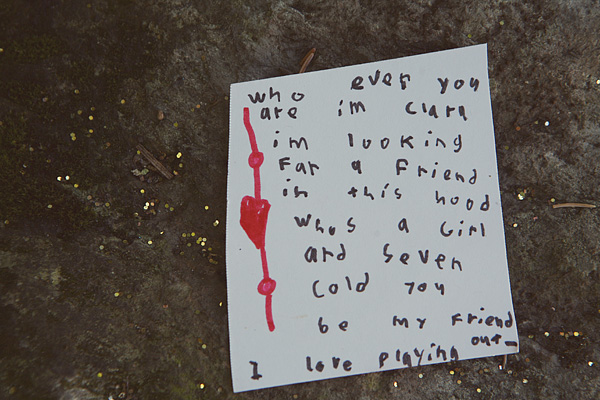 who ever you
are im clara
im looking
far a friend
in this hood
whos a Girl
and seven
cold you
be my friend
I love playing out